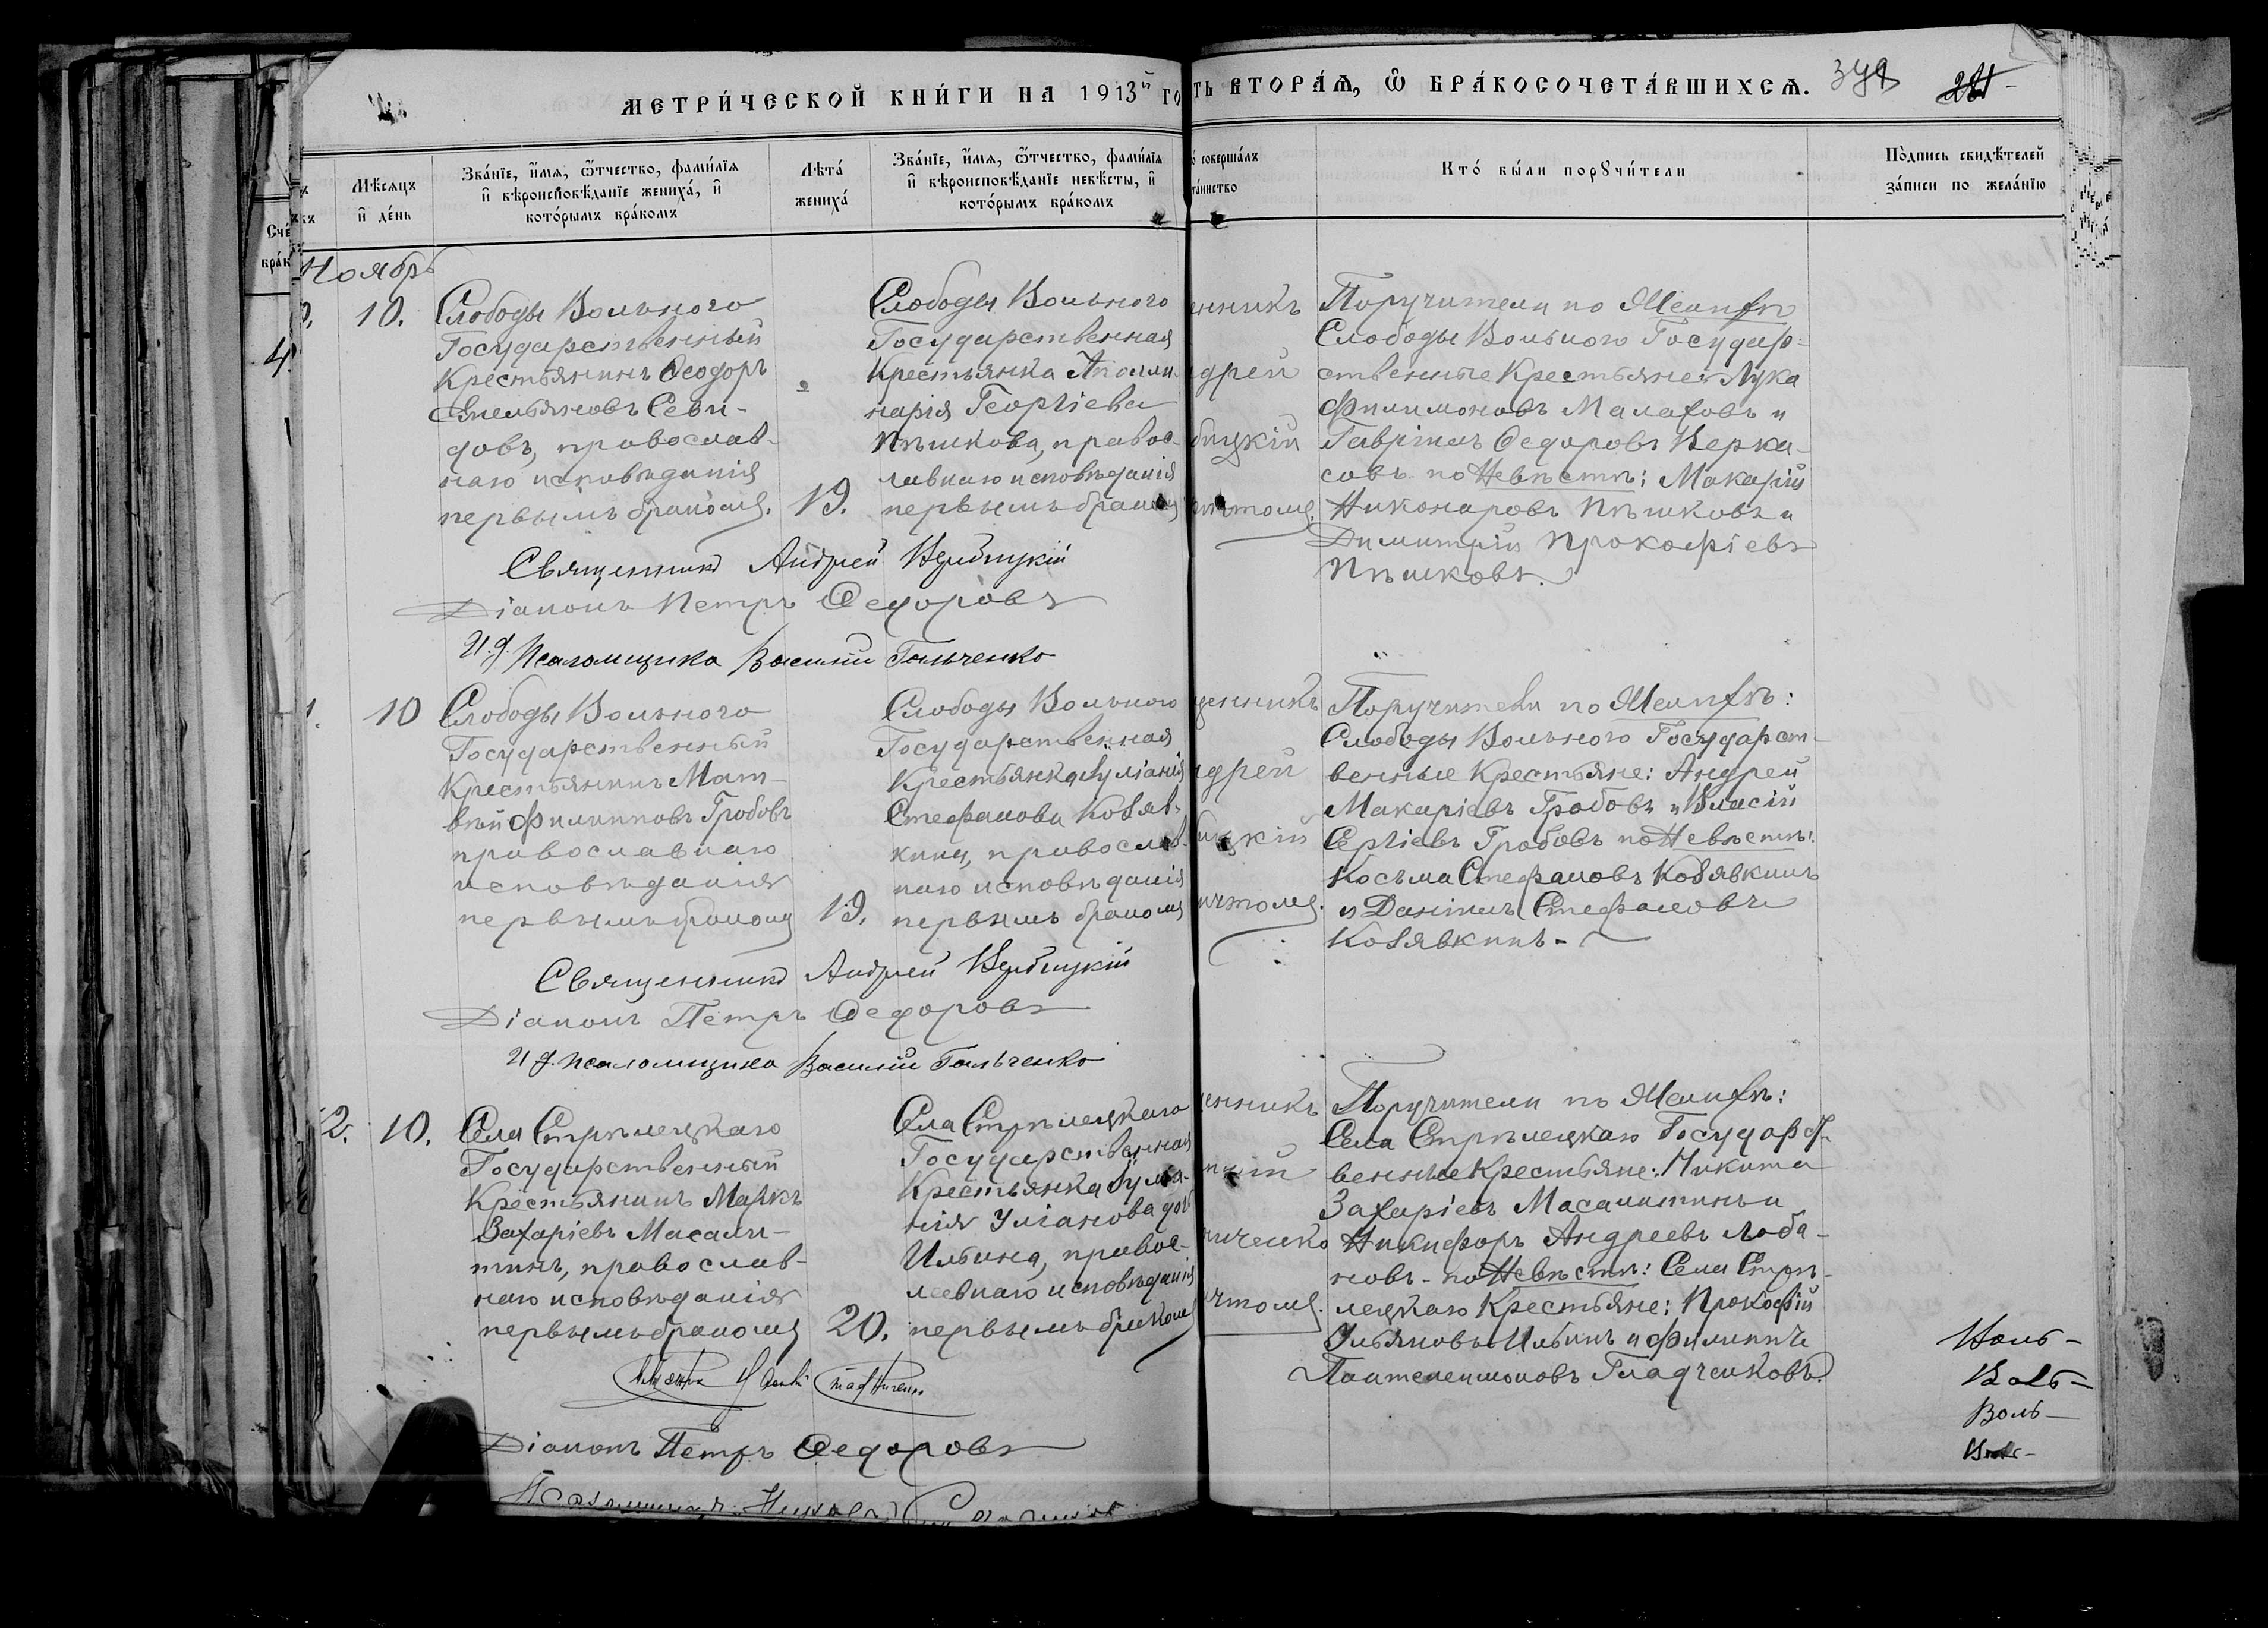 МЕТРИ́ЧЕСКОЙ КНИ́ГИ НА 1913й ГО
ТЬ ВТОРА́Я, Ѿ БРА́КОСОЧЕТА́ВШИХСЯ.
Мѣ́сяцъ
и҆ де́нь
Зва́нїе, и҆́мя, ѻ҆́тчество, фами́лїя
и҆ вѣроисповѣ́данїе жениха̀, и҆
кото́рымъ бра́комъ
Лѣта̀
жениха̀
Зва́нїе, и҆́мя, ѻ҆́тчество, фами́лїя
и҆ вѣроисповѣ́данїе невѣ́сты, и҆
кото́рымъ бра́комъ
совершáлъ
тáинство
Кто́ бы́ли порꙋчи́тели
По́дпись свидѣ́телей
за́писи по жела́нїю
Счé
брáк
4.
Ноябрь
10.
Слободы Вольного
Государственный
Крестьянинъ Ѳеодоръ
Емельяновъ Севи-
довъ, православ-
наго исповѣданія
первымъ бракомъ.
19.
Слободы Вольного
Государственная
Крестьянка Аполли-
нарія Георгіева
Пѣшкова, правос-
лавнаго исповѣданія
первымъ бракомъ
енникъ
дрей
бицкій
Поручители по Женихѣ
Слободы Вольного Государ-
ственные Крестьяне: Лука
Филимоновъ Малаховъ и
Гавріилъ Ѳедоровъ Верка-
совъ по Невѣстѣ: Макарій
Никоноровъ Пѣшковъ и
Димитрій Прокофіевъ
Пѣшковъ.
Священникъ Андрей
Діаконъ Петръ Ѳедоровъ
И.д. Псаломщика Василій Гальченко
10
Слободы Вольного
Государственный
Крестьянинъ Мат-
вѣй Филипповъ Гробовъ
православнаго
исповѣданія
первымъ бракомъ
19.
Слободы Вольного
Государственная
Крестьянка Іуліанія
Стефанова Козяв-
кина, православ-
наго исповѣданія
первымъ бракомъ
щенникъ
дрей
ицкій
Поручители по Женихѣ:
Слободы Вольного Государст-
венные Крестьяне: Андрей
Макаріевъ Гробовъ и Власій
Сергіевъ Гробовъ по Невѣстѣ:
Косьма Стефановъ Козявкинъ
и Даніилъ Стефановъ
Козявкинъ-
Священникъ Андрей
Діаконъ Петръ Ѳедоровъ
И.д. псаломщика Василій Гальченко
2.
10.
Села Стрѣлецкаго
Государственный
Крестьянинъ Маркъ
Захаріевъ Масали-
тинъ, православ-
наго исповѣданія
первымъ бракомъ
20.
Села Стрѣлецкаго
Государственная
Крестьянка Іулiа-
нія Уліанова доч
Ильина, правос-
лавнаго исповѣданія
первымъ бракомъ
енникъ
ниченко
Поручители по Женихѣ:
Села Стрѣлецкаго Государст-
венные Крестьяне: Никита
Захаріевъ Масалитинъ и
Никифоръ Андреевъ Лоба-
новъ- по Невѣстѣ: Села Стрѣ-
лецкаго Крестьяне: Прокофій
Ульяновъ Ильинъ и Филиппъ
Пантелеимоновъ Гладченковъ.
Діаконъ Петръ Ѳедоровъ
Воль-